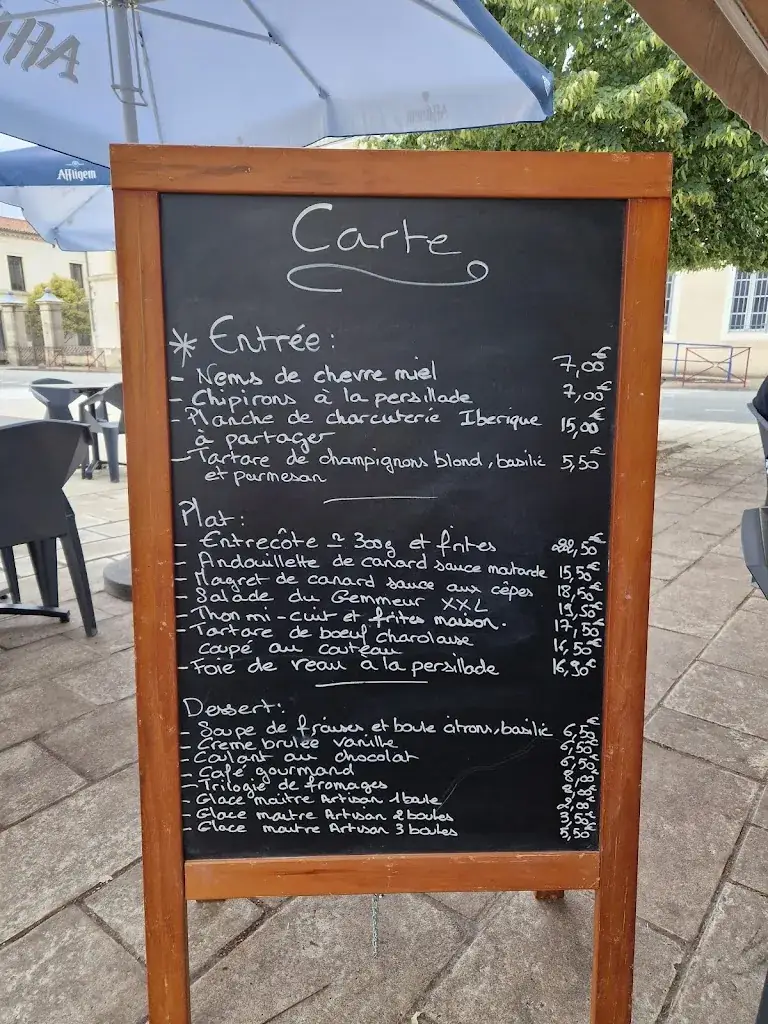 Affligem
Carte
* Entrée:
- Nems de chevre miel 7,00€
- Chipirons à la persillade 7,00€
- Planche de charcuterie Iberique 15,00€
à partager
- Tartare de champignons blond, basilic 5,50€
et parmesan
Plat:
- Entrecôte ≃ 300g et frites 22,50€
- Andouillette de canard sauce moutarde 15,50€
- Magret de canard sauce aux cêpes 18,50€
- Salade du Gemmeur XXL 19,50€
- Thon mi-cuit et frites maison. 17,50€
- Tartare de boeuf charolaise
coupé au couteau
- Foie de veau à la persillade 16,90€
Dessert:
- Soupe de fraises et boule citrons, basilic 6,50€
- Creme brulée vanille 6,50€
- Coulant au chocolat 6,50€
- Café gourmand 8,00€
- Trilogie de fromages 8,00€
- Glace maitre Artisan 1 boule 2,00€
- Glace maitre Artisan 2 boules 3,50€
- Glace maitre Artisan 3 boules 5,50€